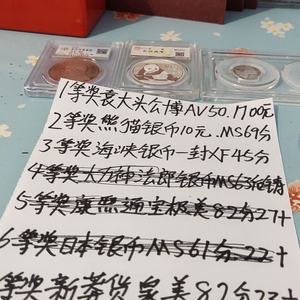 1等奖袁大头公博AV50.1700元
2等奖熊猫银币10元.MS69分
3等奖海峡银币一封XF45分
4等奖大力神法郎银币MS63
5等奖康熙通宝极美82分27+
6等奖日本银币MS61分.22+
等奖新莽货泉美82分23+